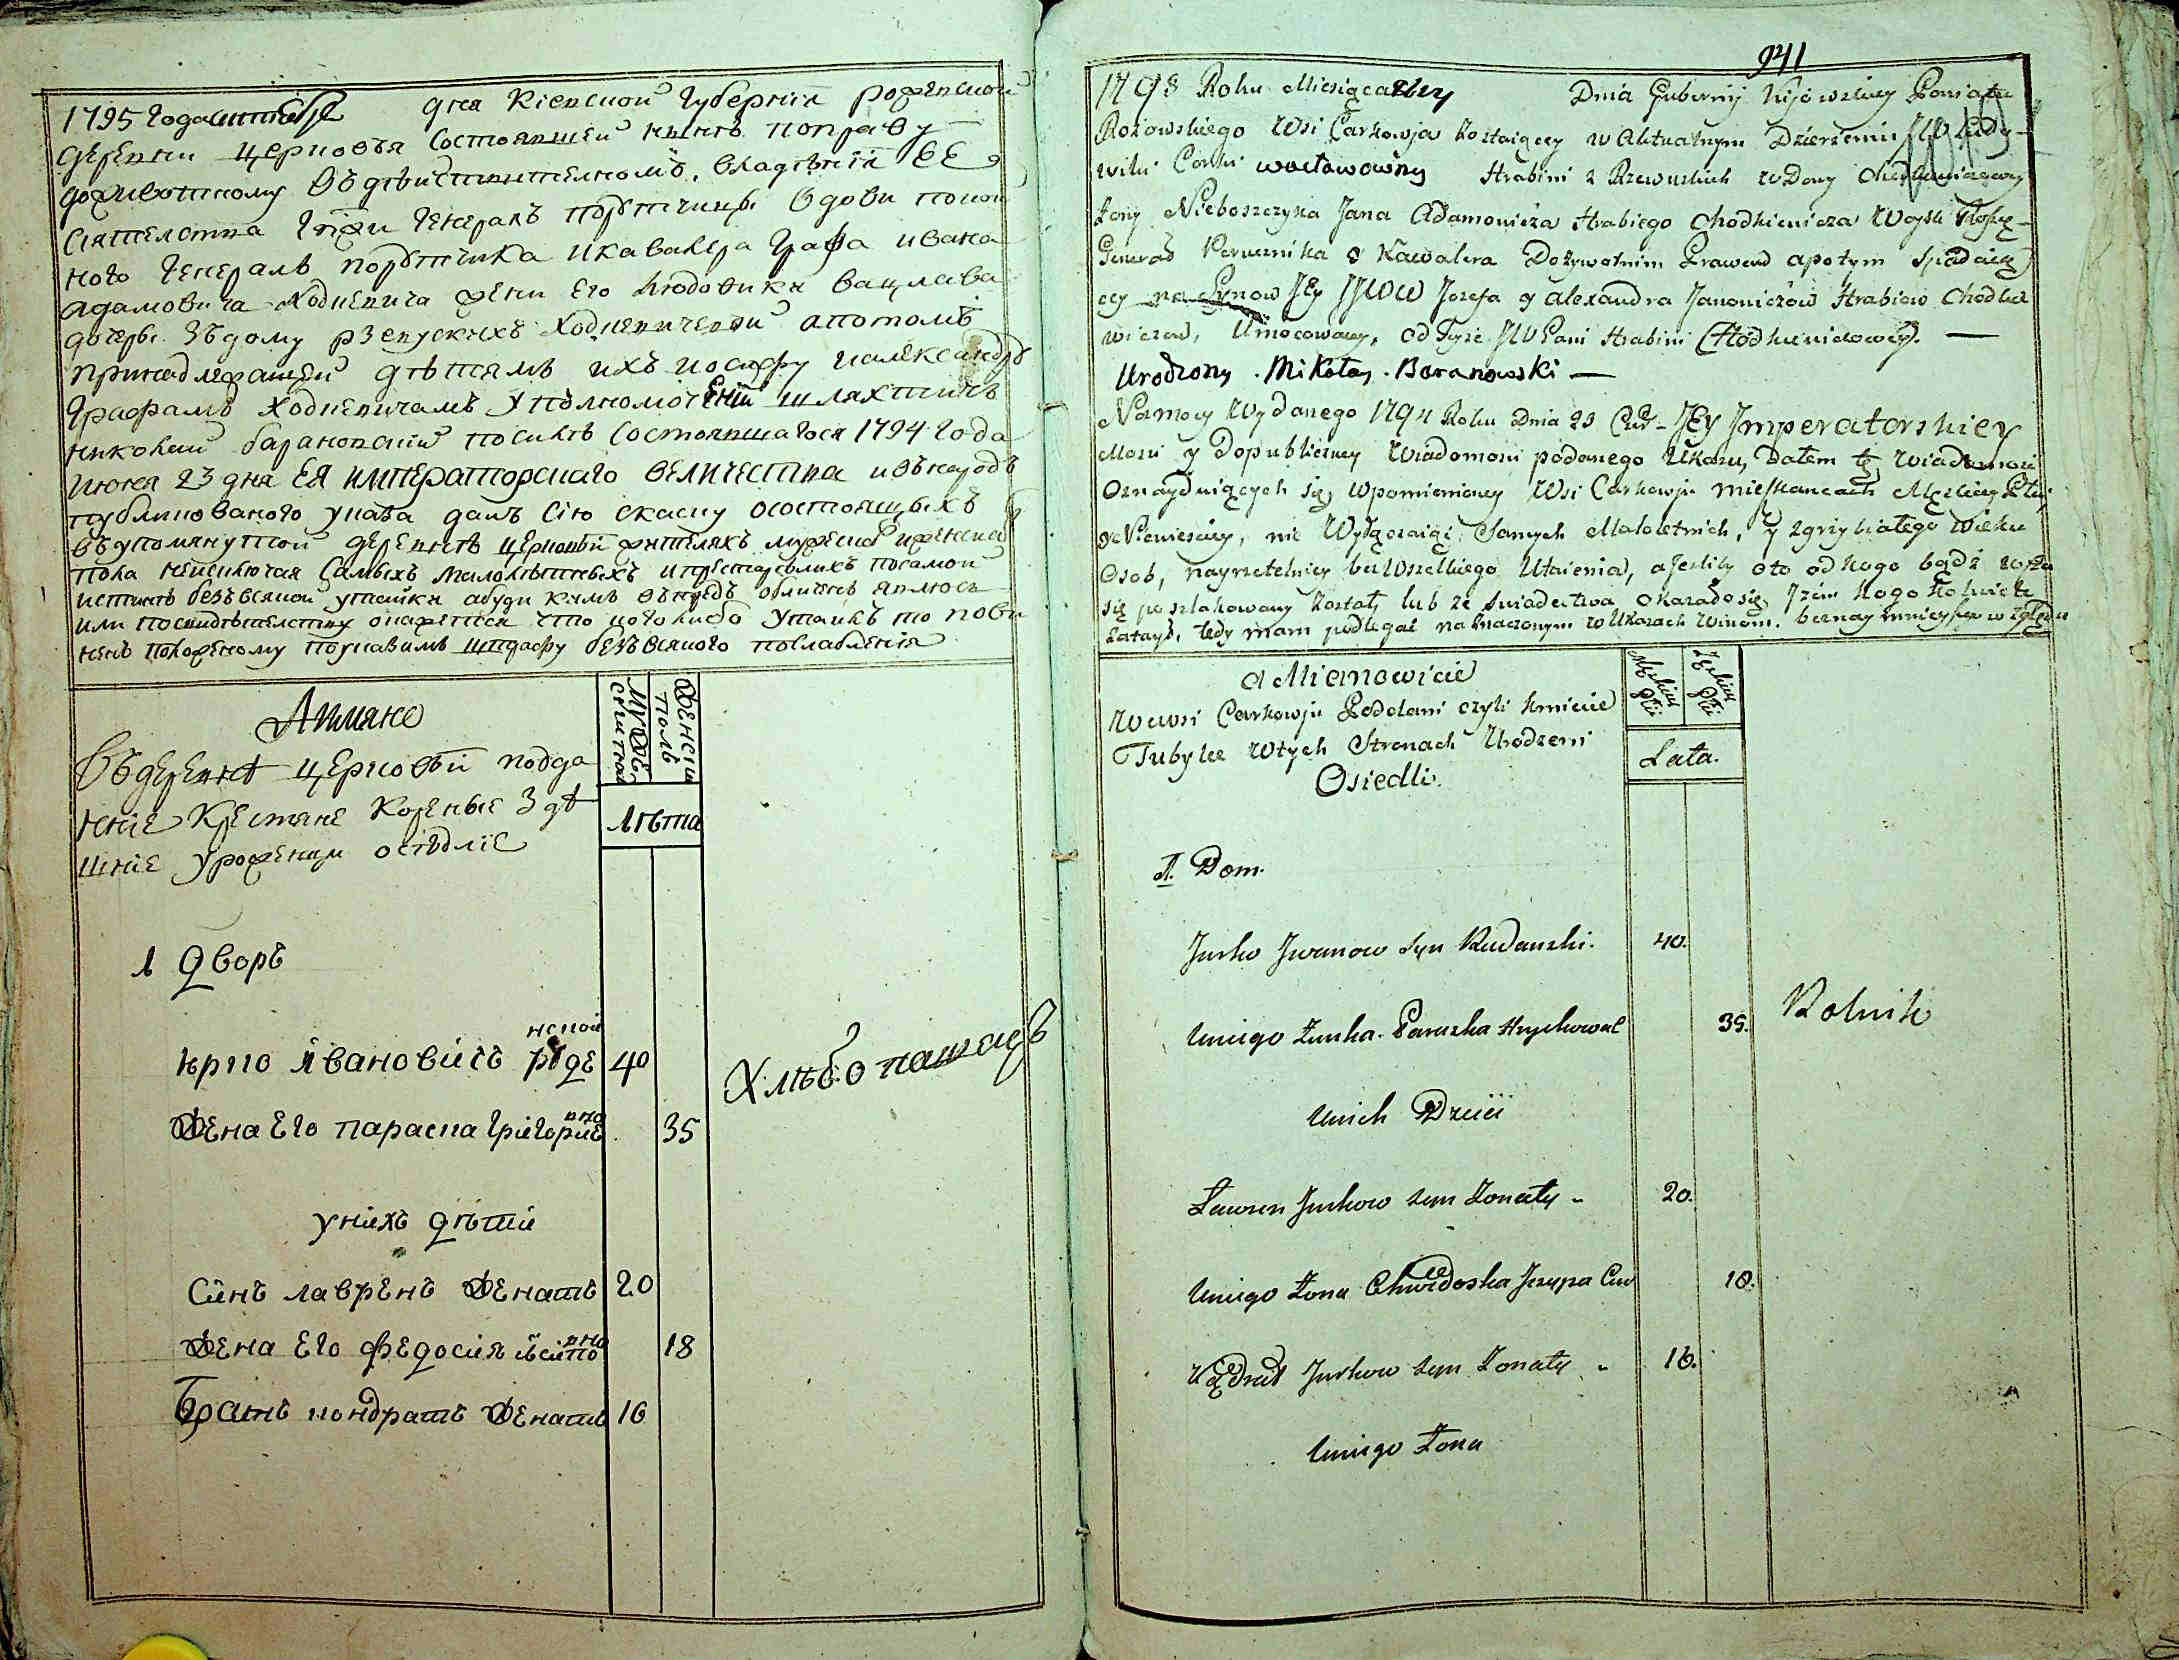 1795 года дня Кіевской Губерніи
деревни Церковья состоявшей нынѣ по праву
доживотному въ дѣйствительномъ владѣніи ЕЕ
сіятелства Генералъ порутчицы вдови покой
ного Генералъ порутчика и кавалера Графа ивана
адамовича Ходкевича жени Его людовики вацлава
дочеры зъ дому рзевускихъ Ходкевичевой а потомъ
принадлежащей дѣтямъ ихъ иосифу и александру
Графамъ Ходкевичамъ уполномоченій шляхтичъ
николай барановскій посилѣ состоявшагося 1794 года
июня 23 дня ЕЯ императорского величества и въ народъ
публикованого указа далъ сію скаску о состоящыхъ
въ упомянутой деревнѣ Церковьи жителяхъ мужеска и женска
пола неисключая самыхъ малолѣтныхъ и престарѣлихъ по самой
истиннѣ безъ всякой утайки а буди кимъ въ предь обличенъ явлюсь
или по свидѣтелству окажется что кого либо утаилъ то пови
ненъ положеному по указамъ штрафу безъ всякого послабленія
А имянно
въ деревнѣ Церковьи подда
ніе крестяне кореные здѣ
шніе уроженци осѣдліе
мужеска
женски полъ
лѣта
1 дворъ
нской
юрко ивановичъ руде 40
вна
жена Его параска григорие 35
у нихъ дѣти
синъ лавренъ женатъ 20
вна
жена Его федосия 18
братъ кондратъ женатъ 16
Хлѣбопашецъ
941
1795 Roku Miesiąca 7bry Dnia Gubernij Kijowskiey Powiatu
Rozowskiego Wsi Carkowja zostaiącey w Aktualnym Dzierzeniu JW Ludy-
wiki Corki wacławowny Hrabini z Rzewuskich wdowy Chodkiewiczowey
żony Nieboszczyka Jana Adamowicza Hrabiego Chodkiewicza Woysk
Generał Porucznika y Kawalera Dożywotnim Prawem apotym spadaią
cey na Synow Jey JJWW Jozefa y alexandra Janowiczów Hrabiow Chodkie
wiczow, Umocowany, od Tyże JW Pani Hrabini Chodkiewiczowey. —
Urodzony . Mikołay . Baranowski —
Namocy Wydanego 1794 Roku Dnia 23 Jey Jmperatorskiey
Mosci y Dopubliczney wiadomosci podanego Ukazu, Dałem tę wiadomosć
Oznayduiących się wpomienioney Wsi Carkowju mieszkancach Męskiey Płci
y Niewiesciey, nie Wyłączaiąc Samych Małoletnich, y zgrzybiałego wieku
Osob, nayrzetelniey bez Wszelkiego Utaienia, a jesliby oto od kogo bądź
się poszlakowany został, lub ze swiadectwa okazało się, Jżem kogo kolwiek
zataył, tedy mam podlegać na znaczonym w Ukazach winom. bez naymnieyszego względu
a Mianowicie
We wsi Carkowju Poddani czyli kmiecie
Tubylce wtych Stronach Urodzeni
Osiedli.
Męskiey Płci
Zęskiey Płci
Lata.
1. Dom.
Jurko Jwanow syn Rudanski. 40.
Uniego Zonka. Paraska Hrychowa 35.
Rolnik
Unich Dzieci
Ławren Jurkow syn Zonaty - 20.
Uniego Zona Chwedoska 18.
Kądrat Jurkow syn Zonaty - 16.
Uniego Zona